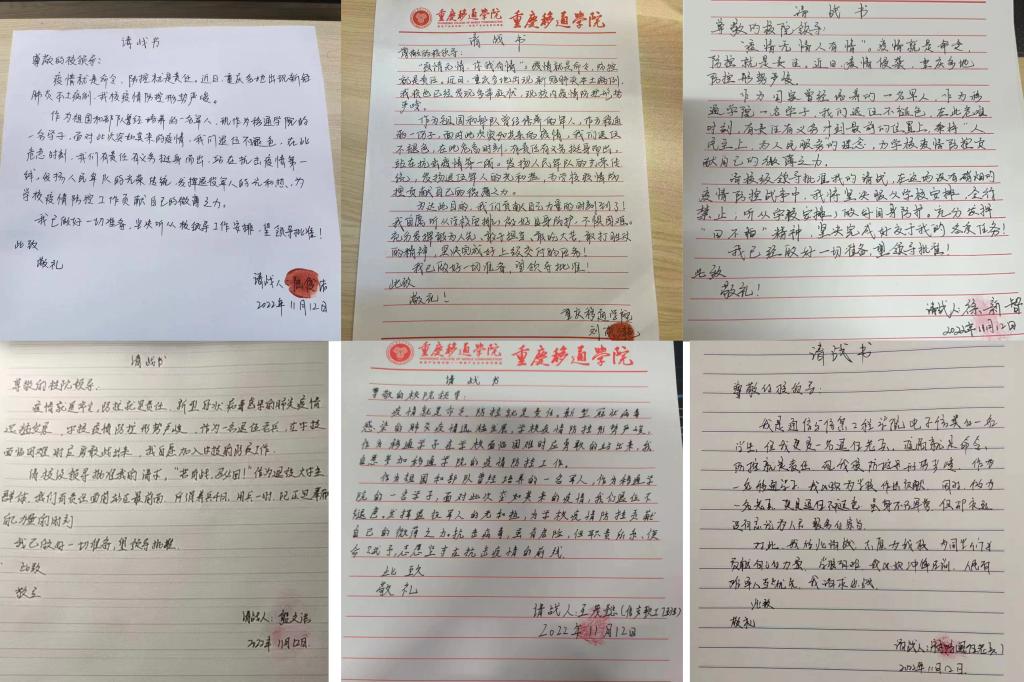 请战书
尊敬的校领导：
疫情就是命令，防控就是责任。近日，重庆多地出现新冠
肺炎本土病例，我校疫情防控形势严峻。
作为祖国和部队曾经培养的一名军人，现作为移通学院的
一名学子，面对此次突如其来的疫情，我们退伍不褪色，在此
危急时刻，我们有责任有义务挺身而出，站在抗击疫情第一
线，发扬人民军队的光荣传统，发挥退役军人的光和热，为
学校疫情防控工作贡献自己的微薄之力。
我已做好一切准备，坚决听从校领导工作安排，望领导批准！
此致
敬礼
请战人：
2022年11月12日
重庆移通学院
请战书
尊敬的校领导：
"疫情无情，
疫情就是命令，防控
就是责任。近日，重庆多地出现新冠肺炎本土病例，
我校也已经发现多例症状，现校内疫情防控形势
严峻。
作为祖国和部队曾经培养的一名军人，作为移通
的一份子，面对此次突如其来的疫情，我们退伍
不褪色，在此危急时刻，有责任有义务挺身而出，
站在抗击疫情第一线。发扬人民军队的光荣传
统，发挥退伍军人的光和热，为学校疫情防
控贡献自己的微薄之力。
为达此目的，我们贡献自己力量的时刻到了！
我自愿听从学校安排，做好自身防护，不惧困难，
的精神，坚决完成好上级交付的任务！
我已做好一切准备，望领导批准！
此致
敬礼！
重庆移通学院
请战书
尊敬的校院领导：
"疫情无情人有情"。疫情就是命令，
防控就是责任。近日，疫情侵袭，重庆多地
防控形势严峻。
作为国家曾经培养的一名军人，作为移
通学院一名学子，我们退伍不褪色，在此危难
时刻，有责任有义务冲到最前的位置上，秉持"人
民至上，为人民服务的理念，为学校疫情防控贡
献自己的微薄之力。
请校级领导批准我的请战，在这场没有硝烟的
疫情防控战争中，我将坚决服从学校安排，令行
禁止，听从学校安排，做好自身防护。充分发挥
精神，坚决完成好交于我的各项任务！
我已经做好一切准备，望领导批准！
此致
敬礼！
请战人：徐新哲
2022年11月12日
请战书
尊敬的校院领导：
疫情就是命令，防控就是责任，新型冠状病毒感染的肺炎疫情
迅猛发展，学校疫情防控形势严峻，作为一名退伍老兵，在学校
面临困难时应勇敢站出来，我自愿加入学校的防疫工作。
请校级领导批准我的请求，"若有战，召必回！"作为退役大学生
群体，我们有责任也有义务站在最前面，养兵千日，用兵一时，现正是奉献
自己力量的时刻
我已做好一切准备，望领导批准
此致
敬礼
请战人：
2022年11月12日
重庆移通学院
请战书
尊敬的校院领导：
疫情就是命令，防控就是责任，新型冠状病毒
感染的肺炎疫情迅猛发展，学校疫情防控形势严峻，
作为移通学子在学校面临困难时应勇敢的站出来，我
自愿参加移通学院的疫情防控工作。
作为祖国和部队曾经培养的一名军人，作为移通学
院的一名学子，面对此次突如其来的疫情，我们退伍不
褪色，发挥退役军人的光和热，为学校疫情防控贡献
自己的微薄之力，抗击病毒，虽有危险，但职责所在，使
命
在抗击疫情的前线。
此致
敬礼
请战人：
2022年11月12日
请战书
尊敬的校领导：
我是通信与信息工程学院电子信息类的一名
学生，但我更是一名退伍老兵，疫情就是命令，
防控就是责任，现我校防控形势严峻，作为
一名移通学子，我应该为学校作出贡献，同时，作为
一名老兵，更是退伍不褪色，虽身不在军营，但初衷永
此致
敬礼
请战人：
2022年11月12日